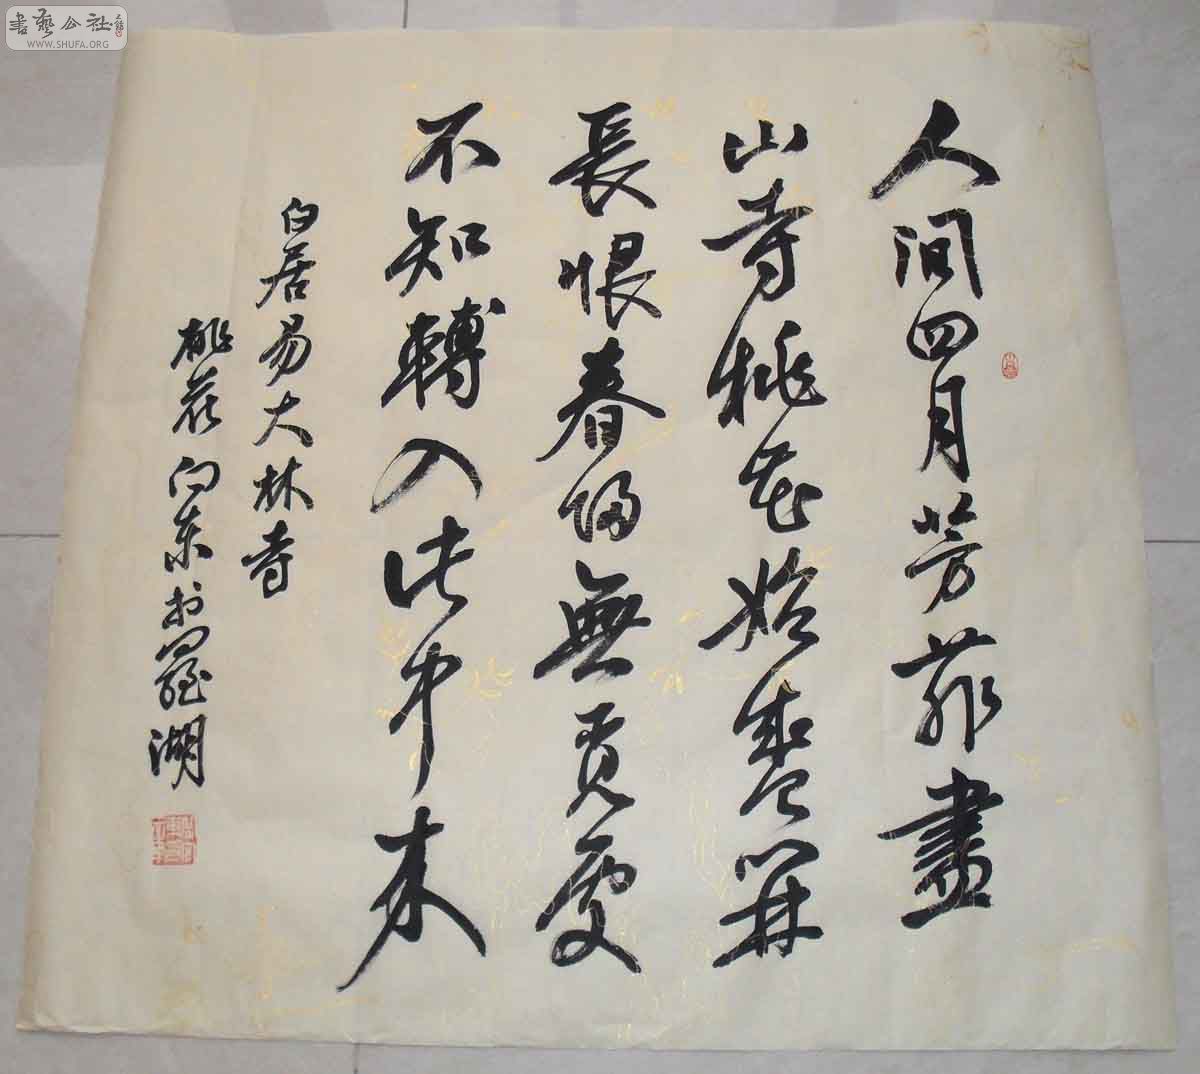 人间四月芳菲盡
山寺桃花始盛開
長恨春歸無覓處
不知轉入此中来
白居易大林寺
桃花 向東书於羅湖
書藝公社
WWW.SHUFA.ORG